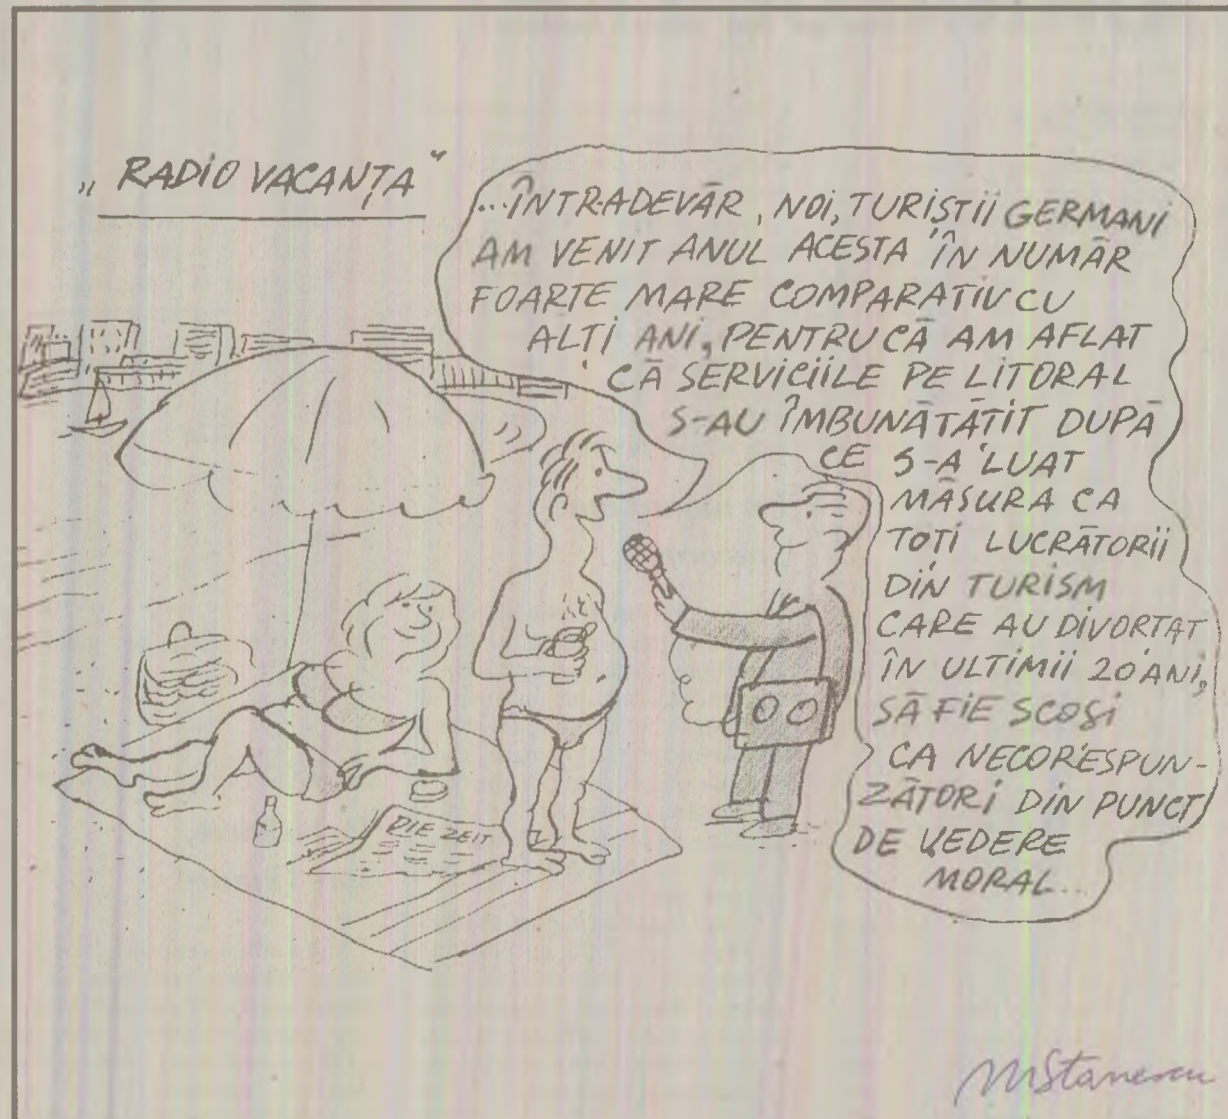 „RADIO VACANȚA”
...ÎNTRADEVĂR, NOI, TURIȘTII GERMANI
AM VENIT ANUL ACESTA ÎN NUMĂR
FOARTE MARE COMPARATIV CU
ALȚI ANI, PENTRU CĂ AM AFLAT
CĂ SERVICIILE PE LITORAL
S-AU ÎMBUNĂTĂȚIT DUPĂ
CE S-A LUAT
MĂSURA CA
TOȚI LUCRĂTORII
DIN TURISM
CARE AU DIVORȚAT
ÎN ULTIMII 20 ANI,
SĂ FIE SCOȘI
CA NECORESPUN-
ZĂTORI DIN PUNCT
DE VEDERE
MORAL...
DIE ZEIT
MStanescu